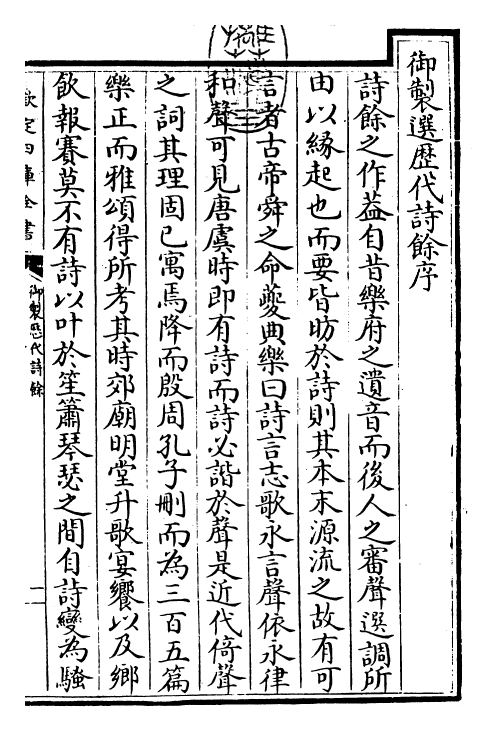 御製選歴代詩餘序
詩餘之作葢自昔樂府之遺音而後人之審聲選調所
由以緣起也而要皆昉於詩則其本末源流之故有可
言者古帝舜之命夔典樂曰詩言志歌永言聲依永律
和聲可見唐虞時即有詩而詩必諧於聲是近代倚聲
之詞其理固已寓焉降而殷周孔子刪而為三百五篇
樂正而雅頌得所考其時郊廟明堂升歌宴饗以及鄉
飲報賽莫不有詩以叶於笙簫琴瑟之間自詩變為騷
欽定四庫全書
御製歷代詩餘